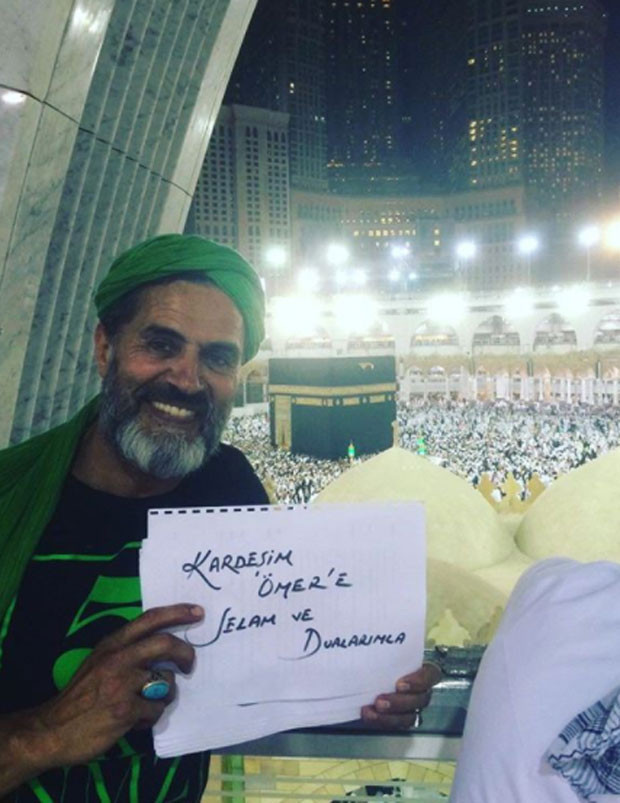 KARDEŞİM
ÖMER'E
SELAM VE
DUALARIMLA